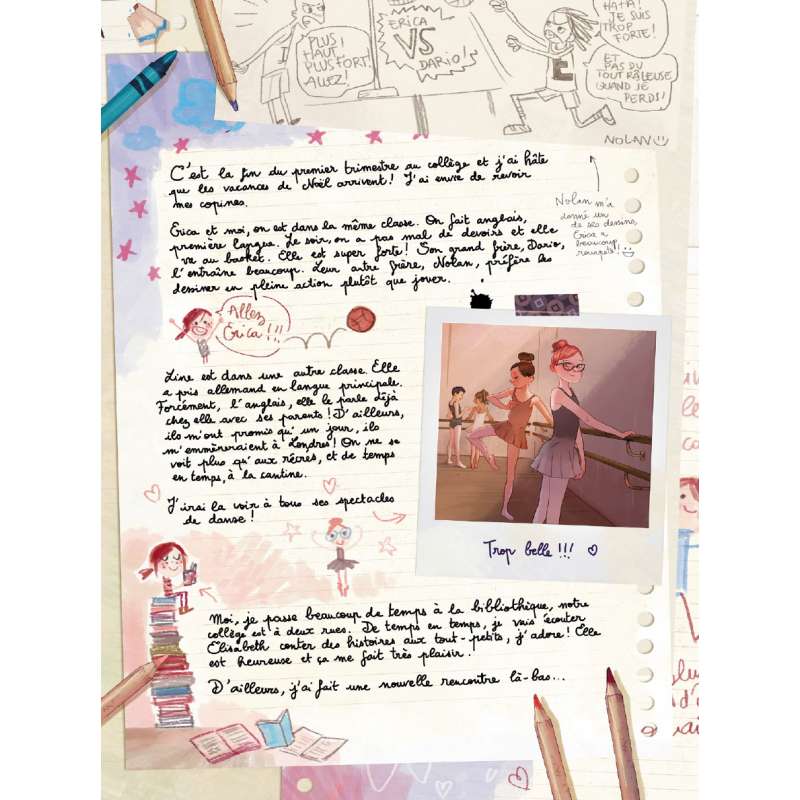 PLUS !
HAUT,
PLUS FORT !
ALLEZ !
ERICA
VS
DARIO !
HAHA !
JE SUIS
TROP
FORTE !
ET
PAS DU
TOUT RÂLEUSE
QUAND JE
PERDS !
NOLAN
C'est la fin du premier trimestre au collège et j'ai hâte
que les vacances de Noël arrivent ! J'ai envie de revoir
mes copines.
Nolan m'a
donné un
de ses dessins,
Erica a
beaucoup
Erica et moi, on est dans la même classe. On fait anglais,
première langue. Le soir, on a pas mal de devoirs et elle
va au basket. Elle est super forte ! Son grand frère, Dario,
l'entraîne beaucoup. Leur autre frère, Nolan, préfère les
dessiner en pleine action plutôt que jouer.
Allez
Erica !!!
Line est dans une autre classe. Elle
a pris allemand en langue principale.
Forcément, l'anglais, elle le parle déjà
chez elle avec ses parents ! D'ailleurs,
ils m'ont promis qu'un jour, ils
m'emmèneraient à Londres ! On ne se
voit plus qu'aux récrés, et de temps
en temps, à la cantine.
J'irai la voir à tous ses spectacles
de danse !
Trop belle !!!
Moi, je passe beaucoup de temps à la bibliothèque, notre
collège est à deux rues. De temps en temps, je vais écouter
Élisabeth conter des histoires aux tout-petits, j'adore ! Elle
est heureuse et ça me fait très plaisir.
D'ailleurs, j'ai fait une nouvelle rencontre là-bas...